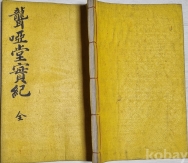 聾啞堂寶紀
全
kobay